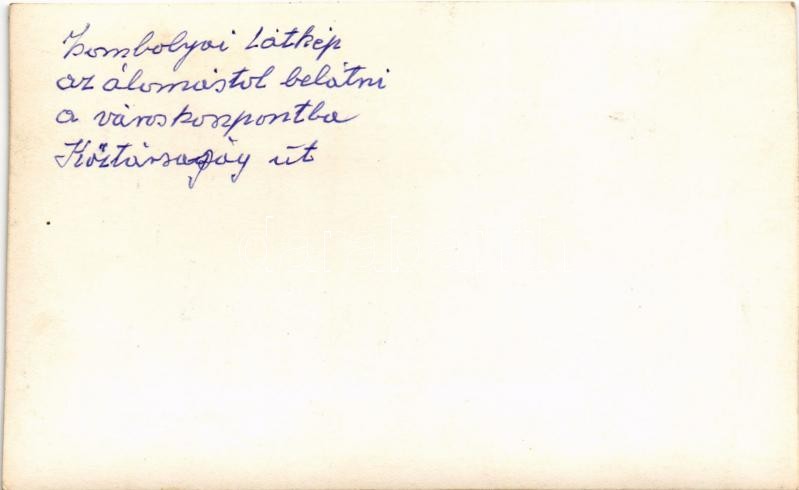 Zombolyai Látkép
az álomástol belátni
a városkozpontba
Köztársaság út